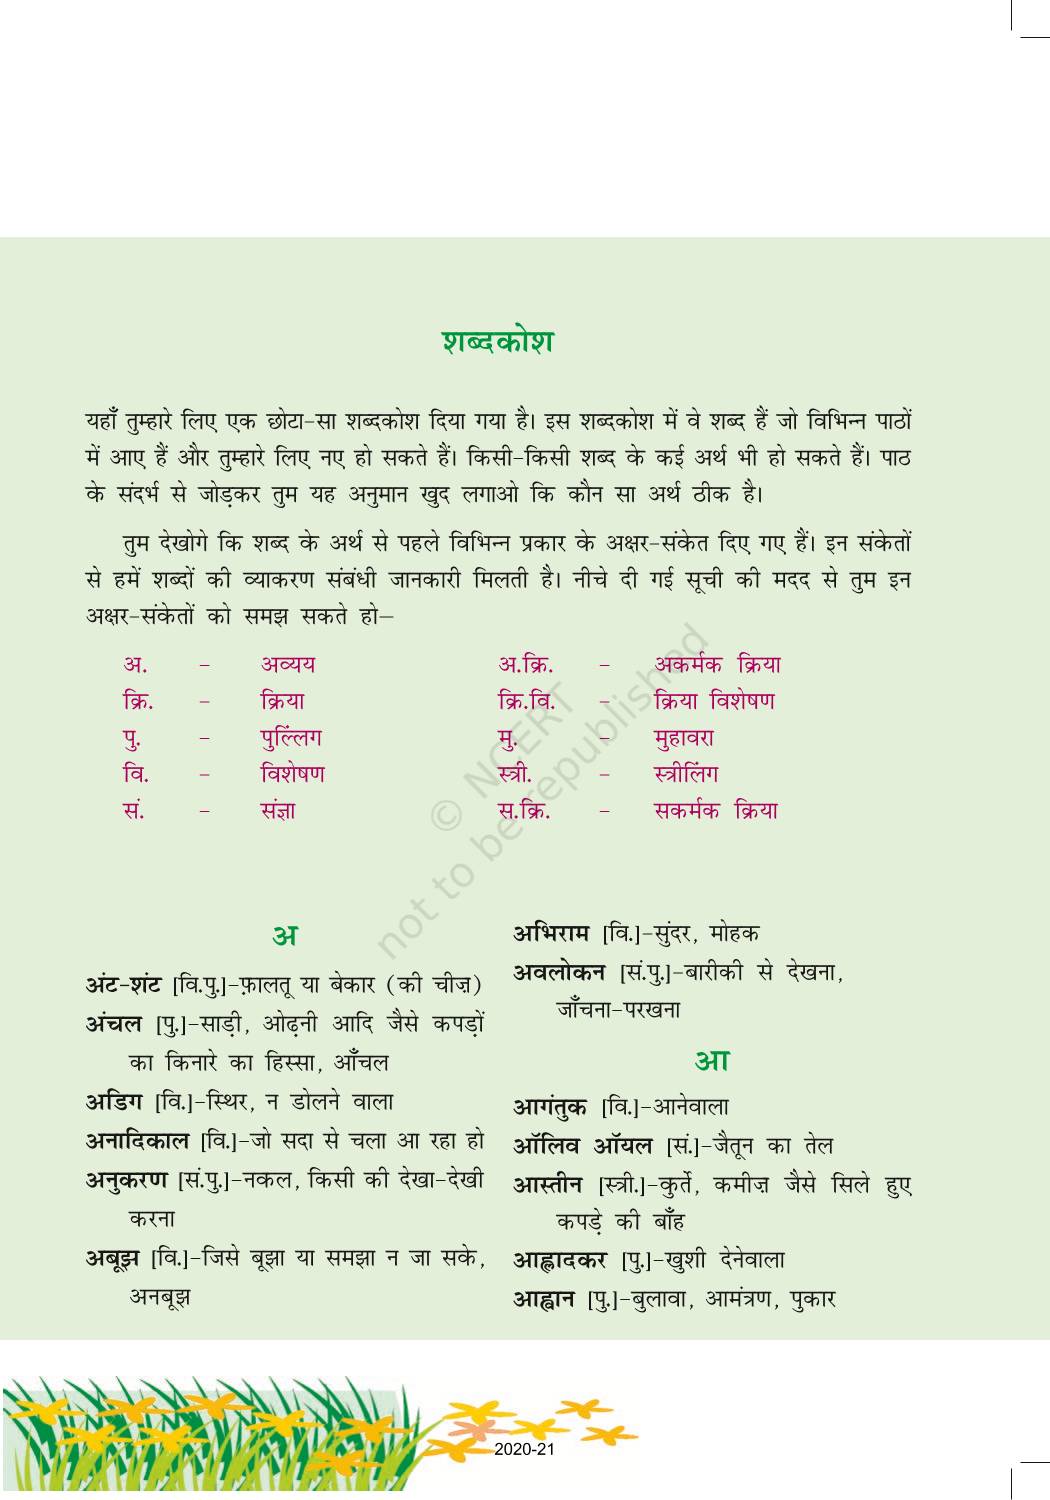 शब्दकोश
यहाँ तुम्हारे लिए एक छोटा-सा शब्दकोश दिया गया है। इस शब्दकोश में वे शब्द हैं जो विभिन्न पाठों
में आए हैं और तुम्हारे लिए नए हो सकते हैं। किसी-किसी शब्द के कई अर्थ भी हो सकते हैं। पाठ
के संदर्भ से जोड़कर तुम यह अनुमान खुद लगाओ कि कौन सा अर्थ ठीक है।
तुम देखोगे कि शब्द के अर्थ से पहले विभिन्न प्रकार के अक्षर-संकेत दिए गए हैं। इन संकेतों
से हमें शब्दों की व्याकरण संबंधी जानकारी मिलती है। नीचे दी गई सूची की मदद से तुम इन
अक्षर-संकेतों को समझ सकते हो—
अ. - अव्यय अ.क्रि. - अकर्मक क्रिया
क्रि. - क्रिया क्रि.वि. - क्रिया विशेषण
पु. - पुल्लिंग मु. - मुहावरा
वि. - विशेषण स्त्री. - स्त्रीलिंग
सं. - संज्ञा स.क्रि. - सकर्मक क्रिया
© NCERT
not to be republished
अ
अंट-शंट [वि.पु.]-फ़ालतू या बेकार (की चीज़)
अंचल [पु.]-साड़ी, ओढ़नी आदि जैसे कपड़ों
का किनारे का हिस्सा, आँचल
अडिग [वि.]-स्थिर, न डोलने वाला
अनादिकाल [वि.]-जो सदा से चला आ रहा हो
अनुकरण [सं.पु.]-नकल, किसी की देखा-देखी
करना
अबूझ [वि.]-जिसे बूझा या समझा न जा सके,
अनबूझ
अभिराम [वि.]-सुंदर, मोहक
अवलोकन [सं.पु.]-बारीकी से देखना,
जाँचना-परखना
आ
आगंतुक [वि.]-आनेवाला
ऑलिव ऑयल [सं.]-जैतून का तेल
आस्तीन [स्त्री.]-कुर्ते, कमीज़ जैसे सिले हुए
कपड़े की बाँह
आह्लादकर [पु.]-खुशी देनेवाला
आह्वान [पु.]-बुलावा, आमंत्रण, पुकार
2020-21